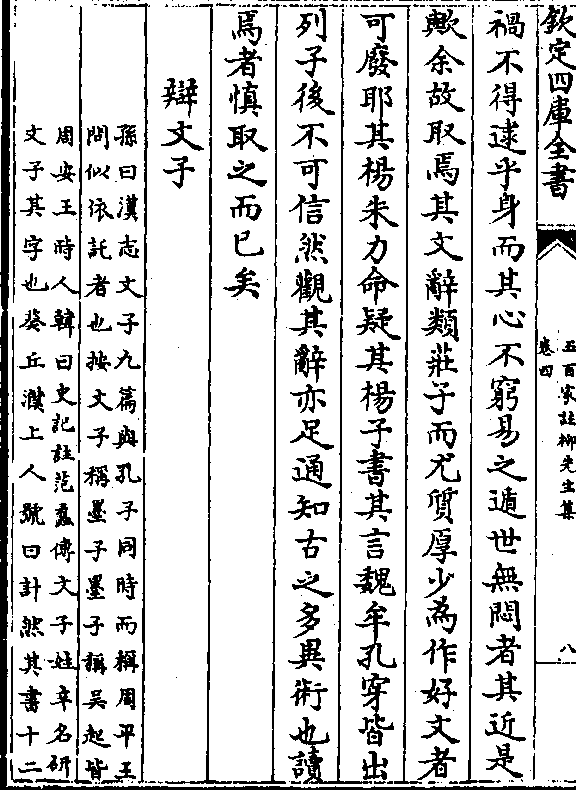 欽定四庫全書
五百家註柳先生集
卷四
八
禍不得逮乎身而其心不窮易之遁世無悶者其近是
歟余故取焉其文辭類莊子而尤質厚少為作好文者
可廢耶其楊朱力命疑其楊子書其言魏牟孔穿皆出
列子後不可信然觀其辭亦足通知古之多異術也讀
焉者慎取之而已矣
辯文子
孫曰漢志文子九篇與孔子同時而稱周平王
問似依託者也按文子稱墨子墨子稱吳起皆
周安王時人韓曰史記註范蠡傳文子姓辛名研
文子其字也葵丘濮上人號曰計然其書十二